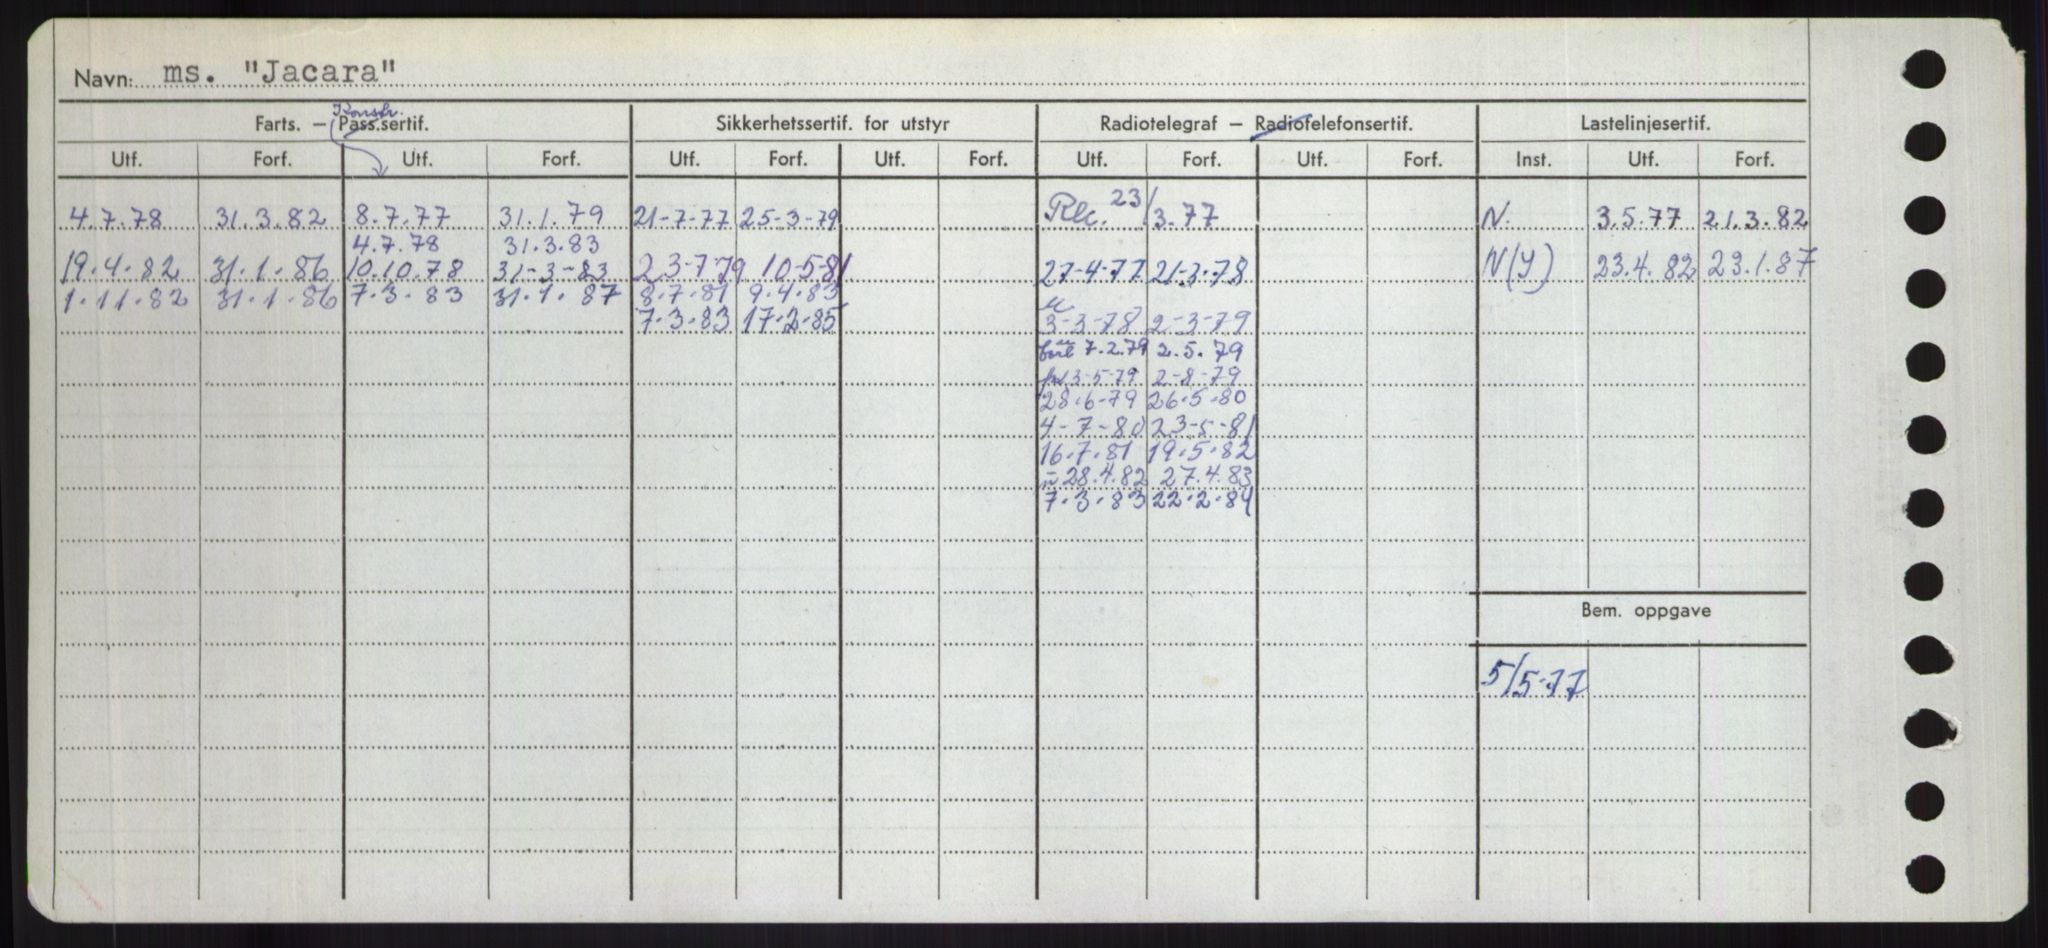 Navn: ms. "Jacara"
Konstr.
Farts. — Pass.sertif. Sikkerhetssertif. for utstyr Radiotelegraf — Radiotelefonsertif. Lastelinjesertif.
Utf. Forf. Utf. Forf. Utf. Forf. Utf. Forf. Utf. Forf. Utf. Forf. Inst. Utf. Forf.
4.7.78 31.3.82 8.7.77 31.1.79 21-7-77 25-3-79 Rec. 23/3.77 N. 3.5.77 21.3.82
4.7.78 31.3.83
19.4.82 31.1.86 10.10.78 31-3-83 23-7-79 10-5-81 27-4-77 21-3-78 N(Y) 23.4.82 23.1.87
1.11.82 31.1.86 7.3.83 31.1.87 8.7.81 9.4.83
7.3.83 17.2.85 3-3-78 2-3-79
7.2.79 2.5.79
3-5-79 2-8-79
28.6.79 26.5.80
4-7-80 23-5-81
16.7.81 19.5.82
28.4.82 27.4.83
7.3.83 22.2.84
Bem. oppgave
5/5-77